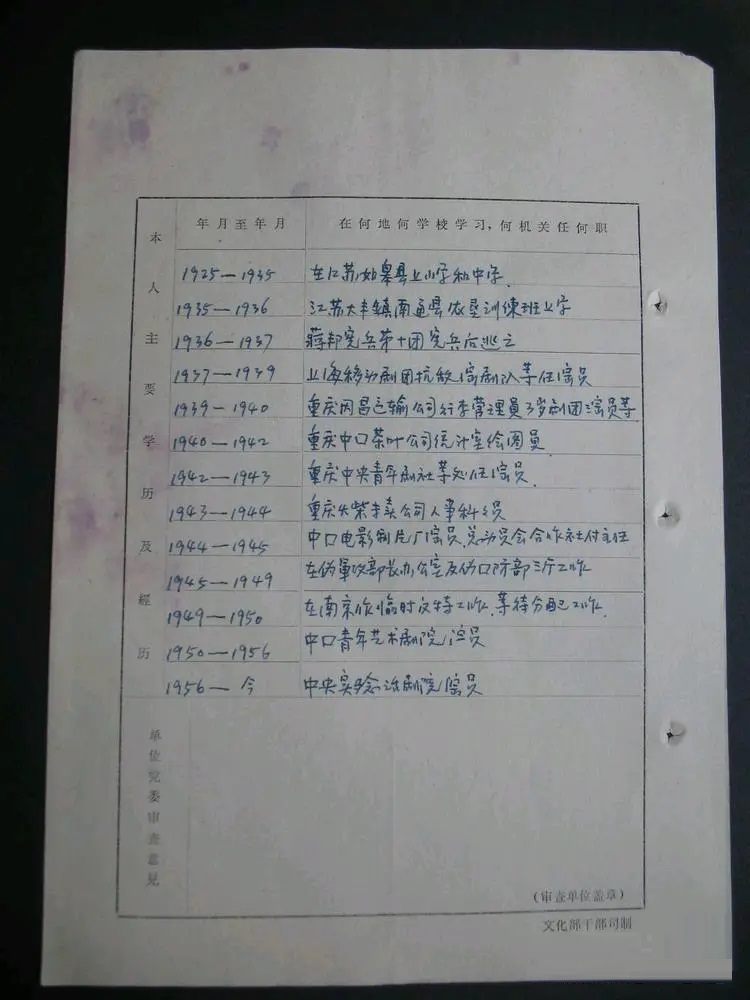 本人主要学历及經历
年月至年月 在何地何学校学习，何机关任何职
1925—1935 在江苏如皋县上小学和中学.
1935—1936 江苏大丰镇南通县农垦训练班上学
1936—1937 蔣邦宪兵第十团宪兵后逃亡
1937—1939 上海移动剧团抗敌演剧队等任演员
1939—1940 重庆同昌运输公司行李管理員 剧团演员等.
1940—1942 重庆中口茶叶公司统计室绘图員.
1942—1943 重庆中央青年剧社等处任演员.
1943—1944 重庆火柴专卖公司人事科科员
1944—1945 中口电影制片厂演员.总动员会合作社付主任
1945—1949 在伪軍政部长办公室及伪口防部三厅工作
1949—1950 在南京作临时文特工作.等待分配工作.
1950—1956 中口青年艺术剧院演员
1956—今 中央实验话剧院演员
单位党委审查意見
（审查单位盖章）
文化部干部司制